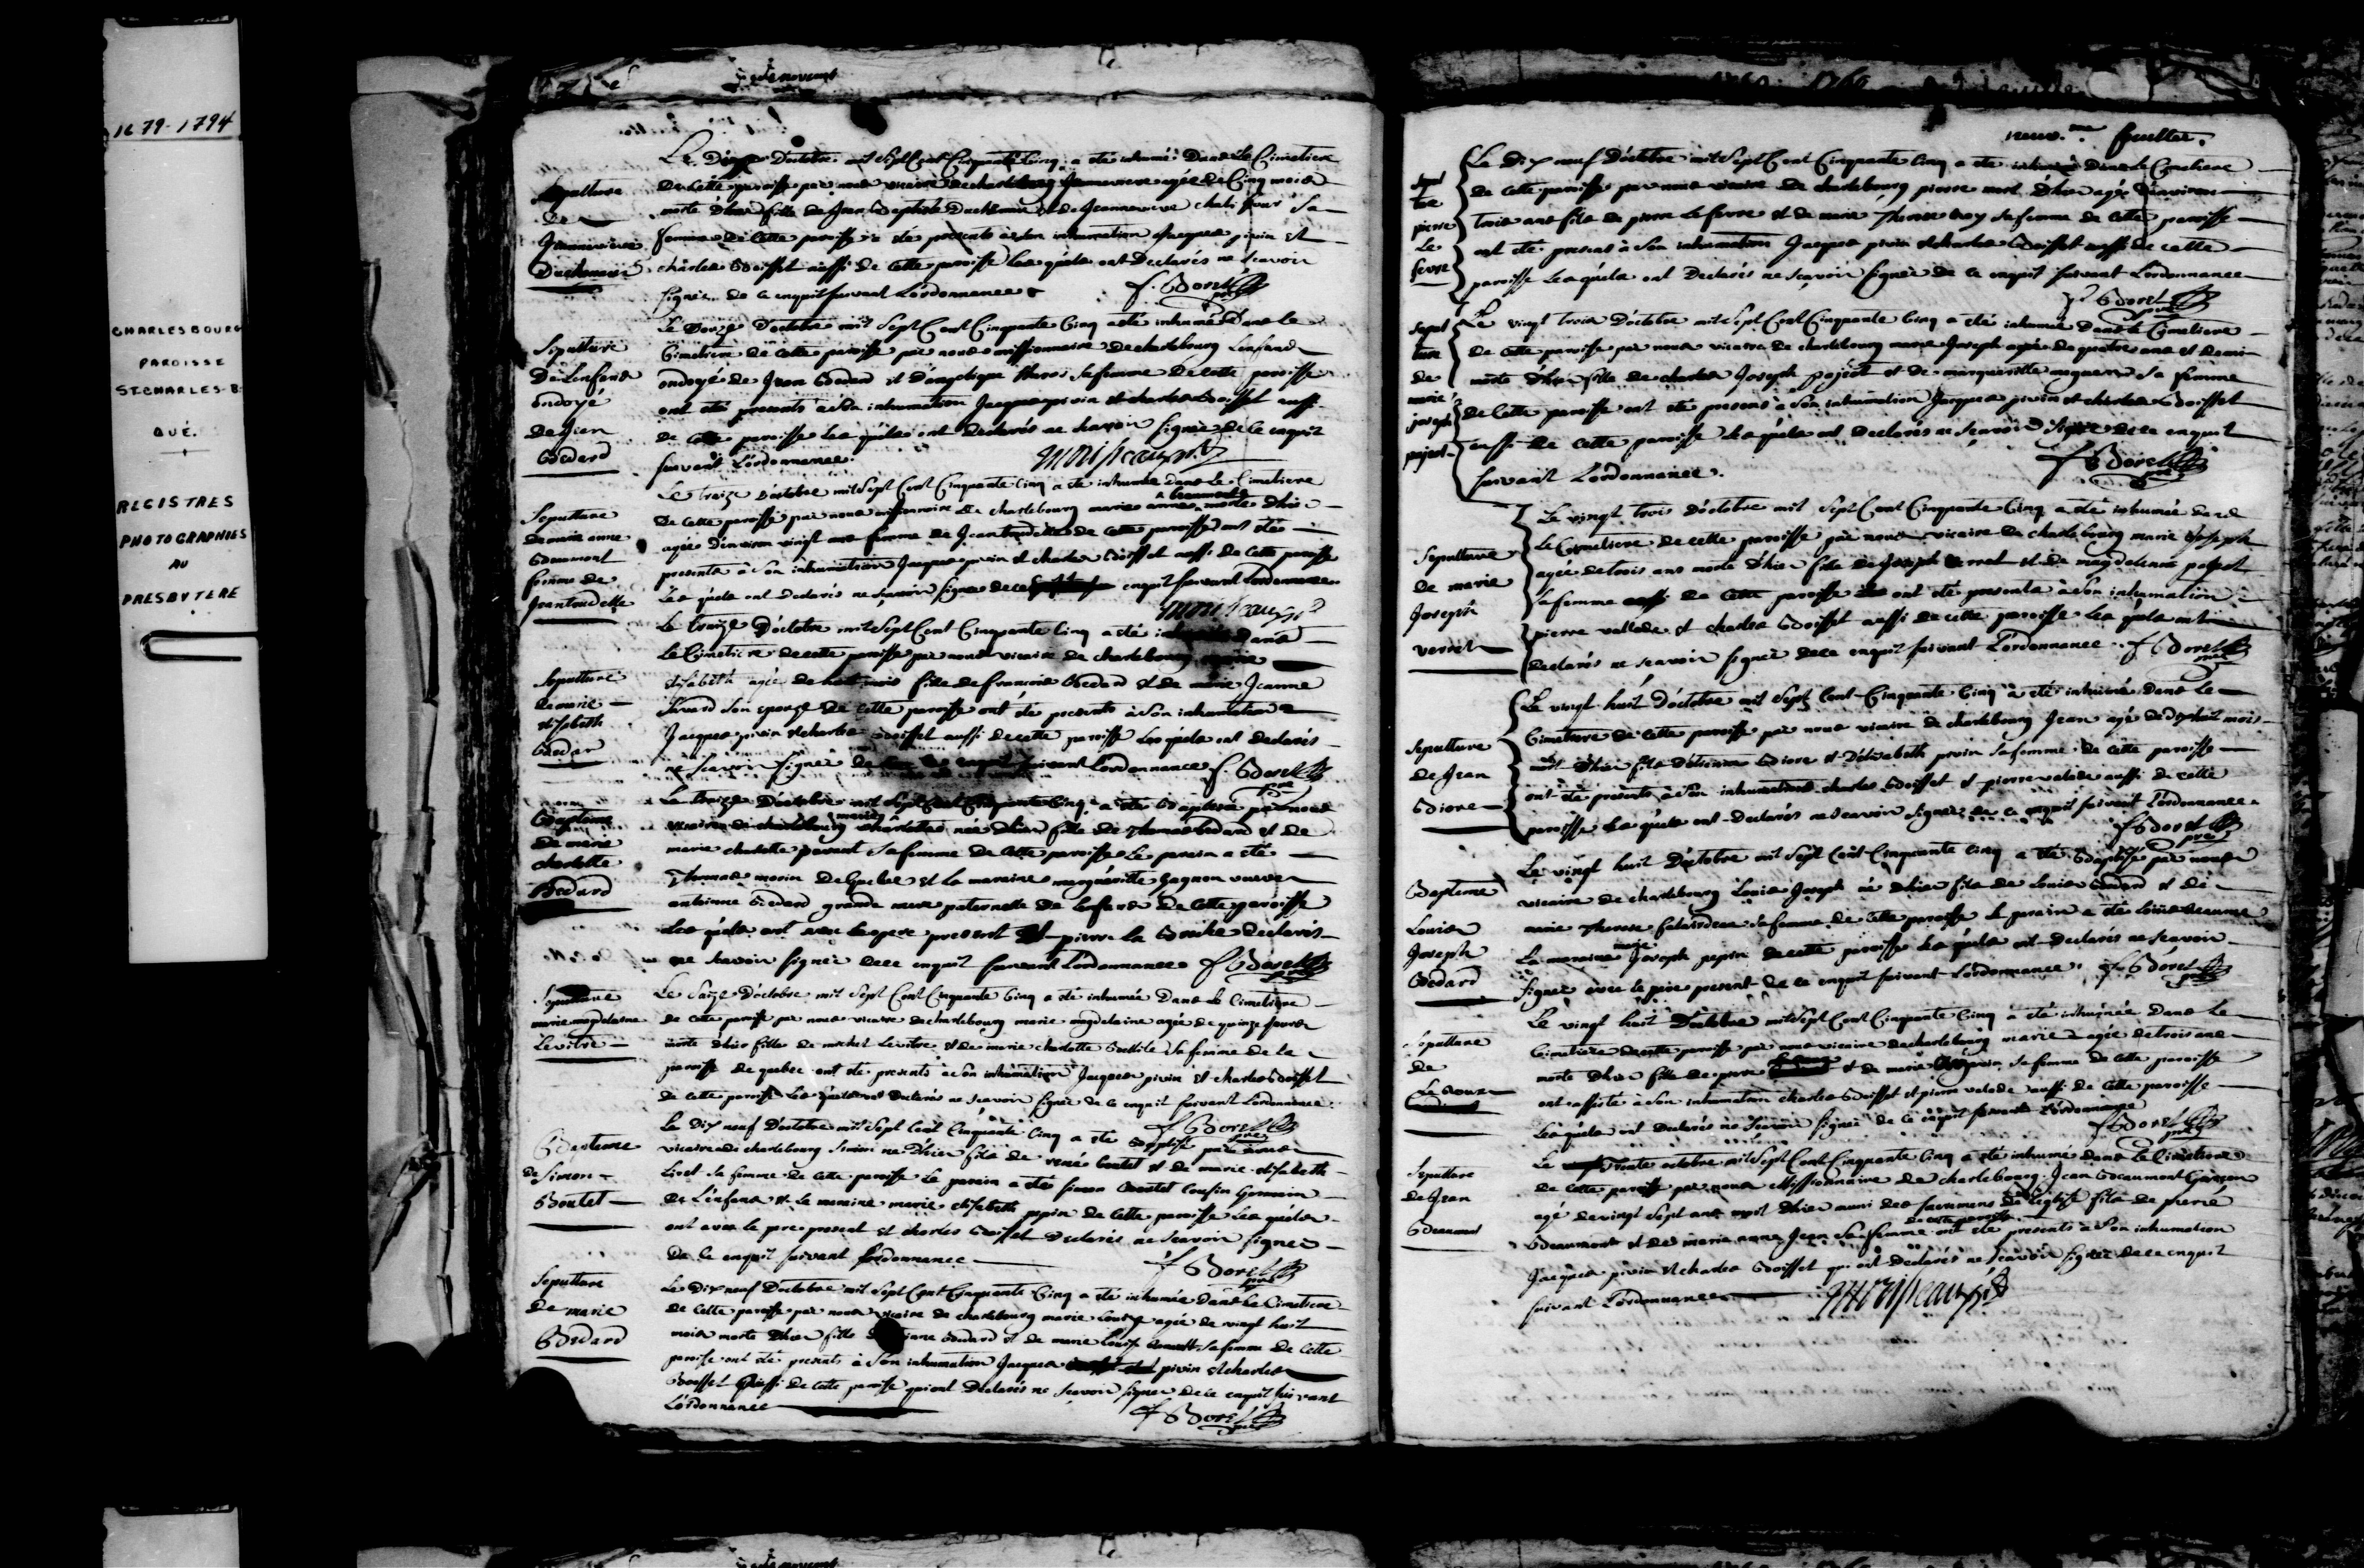 1679-1794
CHARLESBOURG
PAROISSE
ST-CHARLES-B
QUÉ.
REGISTRES
PHOTOGRAPHIES
AU
PRESBYTERE
Sepulture
de
Duchesneau
Le Doctobre mil Sept Cent Cinquante Cinq a été inhumé Dans le Cimetiere
de Cette paroisse par nous vicaire de charlebourg agée de Cinq mois
morte d'hier fille de Jean Baptiste et de Sa
femme de Cette paroisse ont été presents a son inhumation Jacques pivin et
charles Boisset aussi de Cette paroisse Lesquels ont Declarés ne sçavoir
signer de ce enquit suivant Lordonnance
f. Borel ptre
Sepulture
De Lenfand
ondoyé
de Jean
Bedard
Le Douze Doctobre mil Sept Cent Cinquante Cinq a été inhumé Dans le
Cimetiere de Cette paroisse par nous missionnaire de charlebourg Lenfand
ondoyé de Jean Bedard et d'angelique Sa femme de Cette paroisse
ont été presents a son inhumation Jacques pivin et charles Boisset aussi
de Cette paroisse Lesquels ont declarés ne sçavoir signer de ce enquit
suivant Lordonnance.
Morisseaux ptr
Sepulture
de marie anne
Beaumont
femme de
Jean
Le treize d'octobre mil Sept Cent Cinquante Cinq a été inhumée dans le Cimetiere
De Cette paroisse par nous missionnaire de charlebourg marie anne Beaumont morte d'hier
agée d'environ vingt ans femme de Jean de Cette paroisse ont été
presents à son inhumation Jacques pivin et charles Boisset aussi de Cette paroisse
Lesquels ont declarés ne sçavoir signer de ce enquit suivant Lordonnance
Morisseaux ptr
Sepulture
de marie
elisabeth
Bedar
Le treize D'octobre mil Sept Cent Cinquante Cinq a été inhumée Dans
Le Cimetiere de cette paroisse par nous vicaire de charlebourg marie
elisabeth agée de mois fille de francois Bedard et de marie Jeanne
Savard son epouse de Cette paroisse ont été presents à son inhumation
Jacques pivin et charles Boisset aussi de cette paroisse Lesquels ont declarés
ne sçavoir signer de ce enquit suivant Lordonnance f. Borel ptre
Bapteme
de marie
charlotte
Bedard
Le treize D'octobre mil Sept Cent Cinquante Cinq a été Baptisée par nous
vicaire de charlebourg marie charlotte née d'hier fille de Thomas Bedard et de
marie charlotte Sa femme de Cette paroisse Le parain a été
Thomas morin de Quebec et La maraine marguerite Gagnon veuve
antoinne Bedard grande mere paternelle de Lenfand de Cette paroisse
Lesquels ont avec le pere present et pierre declarés
ne sçavoir signer de ce enquit suivant Lordonnance f Borel ptre
Sepulture
marie magdelaine
Levitre
Le Saize D'octobre mil Sept Cent Cinquante Cinq a été inhumée Dans le Cimetiere
de Cette paroisse par nous vicaire de charlebourg marie magdelaine agée de quinze jours
morte d'hier fille de michel Levitre et de marie charlotte Sa femme de La
paroisse de quebec ont été presents a son inhumation Jacques pivin et charles Boisset
de Cette paroisse Lesquels ont Declarés ne sçavoir signer de ce enquit suivant Lordonnance.
f Borel ptre
Bapteme
de Simon
Boutet
Le Dix neuf D'octobre mil Sept Cent Cinquante Cinq a été Baptisé par nous
vicaire de charlebourg Simon né d'hier fils de rené boutet et de marie elisabeth
Sa femme de Cette paroisse Le parain a été simon boutet Cousin Germain
de Lenfand et La maraine marie elisabeth pepin de Cette paroisse Lesquels
ont avec le pere present et charles Boisset Declarés ne sçavoir signer
de ce enquit suivant Lordonnance
f Borel ptre
Sepulture
de marie
Bedard
Le Dix neuf D'octobre mil Sept Cent Cinquante Cinq a été inhumée dans Le Cimetiere
de Cette paroisse par nous vicaire de charlebourg marie Louise agée de vingt huit
mois morte D'hier fille Bedard et de marie Louise Sa femme de Cette
paroisse ont été presents à son inhumation Jacques pivin et charles
Boisset aussi de Cette paroisse qui ont Declarés ne sçavoir signer de ce enquit suivant
Lordonnance
f Borel ptre
neuv.me feuillet.
Sepul
ture
pierre
Le
fevre
Le dix neuf D'octobre mil Sept Cent Cinquante Cinq a été inhumé Dans le Cimetiere
de Cette paroisse par nous vicaire de charlebourg pierre mort d'hier agée d'environ
trois ans fils de pierre Le fevre et de marie Therese roy Sa femme de Cette paroisse
ont été presens à son inhumation Jacques pivin et charles Boisset aussi de cette
paroisse Lesquels ont Declarés ne sçavoir signer de ce enquit suivant Lordonnance
f Borel ptre
Sepul
ture
de
marie
joseph
pajeot
Le vingt trois D'octobre mil Sept Cent Cinquante Cinq a été inhumée Dans le Cimetiere
de Cette paroisse par nous vicaire de charlebourg marie Joseph agée de quatre ans et demi
morte d'hier fille de charles Joseph pajeot et de marguerite Sa femme
de Cette paroisse ont été presens à son inhumation Jacques pivin et charles Boisset
aussi de Cette paroisse Lesquels ont Declarés ne sçavoir signer de ce enquit
suivant Lordonnance.
f Borel ptre
Sepulture
de marie
Joseph
verret
Le vingt trois D'octobre mil Sept Cent Cinquante Cinq a été inhumée dans
Le Cimetiere de cette paroisse par nous vicaire de charlebourg marie Joseph
agée de trois ans morte d'hier fille de Joseph verret et de magdelaine pajeot
Sa femme de Cette paroisse ont été presents à son inhumation
pierre vallade et charles Boisset aussi de cette paroisse Lesquels ont
declarés ne sçavoir signer de ce enquit suivant Lordonnance. f Borel ptre
Sepulture
de Jean
Le vingt huit D'octobre mil Sept Cent Cinquante Cinq a été inhumé Dans Le
Cimetiere de Cette paroisse par nous vicaire de charlebourg Jean agé de dix huit mois
mort d'hier fils d'etienne et d'elisabeth pivin Sa femme de Cette paroisse
ont été presents à son inhumation charles Boisset et pierre valade aussi de cette
paroisse Lesquels ont Declarés ne sçavoir signer de ce enquit suivant Lordonnance.
f Borel ptre
Bapteme
Louis
Joseph
Bedard
Le vingt huit D'octobre mil Sept Cent Cinquante Cinq a été Baptisé par nous
vicaire de charlebourg Louis Joseph né d'hier fils de Louis Bedard et de
marie Therese falardeau sa femme de Cette paroisse Le parain a été Louis
La maraine marie Joseph pepin de cette paroisse Lesquels ont Declarés ne sçavoir
signer avec le pere present de ce enquit suivant Lordonnance. f Borel ptre
Sepulture
de
Le vingt huit D'octobre mil Sept Cent Cinquante Cinq a été inhumée Dans Le
Cimetiere de cette paroisse par nous vicaire de charlebourg marie agée de trois ans
morte d'hier fille de pierre et de marie Sa femme de Cette paroisse
ont assisté à son inhumation charles Boisset et pierre valade aussi de Cette paroisse
Lesquels ont declarés ne sçavoir signer de ce enquit suivant Lordonnance
f Borel ptre
Sepulture
de Jean
Beaumont
Le Trente octobre mil Sept Cent Cinquante Cinq a été inhumé dans Le Cimetiere
de Cette paroisse par nous Missionnaire de charlebourg Jean Beaumont Garçon
agé de vingt Sept ans mort d'hier muni des Sacremens de Leglise fils de pierre
Beaumont et de marie anne Jean Sa femme de cette paroisse ont été presents à son inhumation
Jacques pivin et charles Boisset qui ont Declarés ne sçavoir signer de ce enquit
suivant Lordonnance
Morisseaux ptr